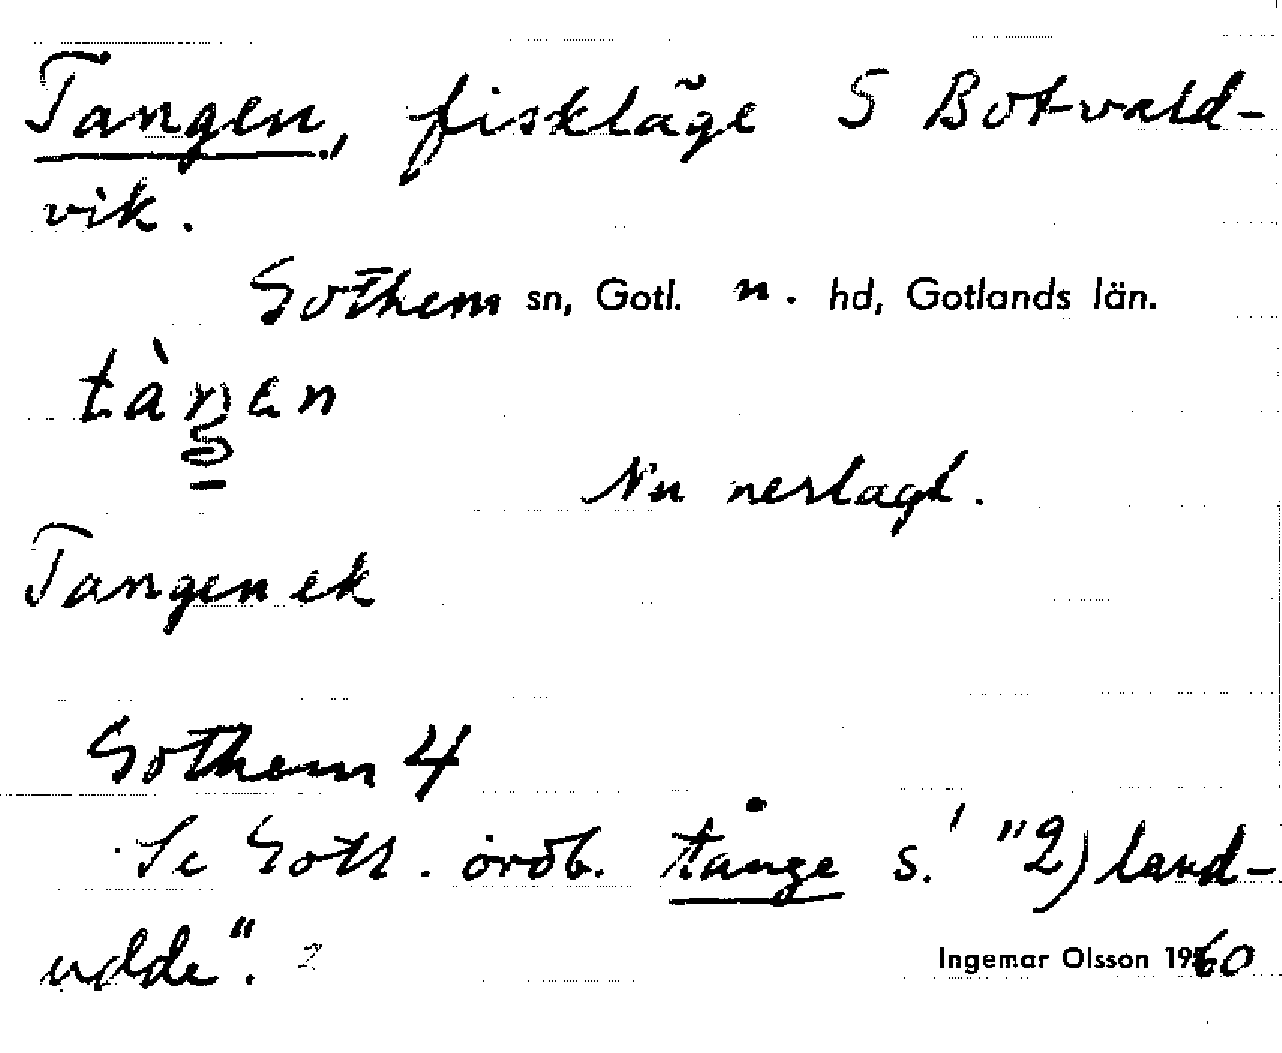 Tangen, fiskläge S Botvald-
vik.
Gothem sn, Gotl. n. hd, Gotlands län.
tàŋen
Nu nerlagt.
Tangen ek
Gothem 4
Se Gotl. ordb. tånge s.' "2) land-
udde". 2
Ingemar Olsson 1960